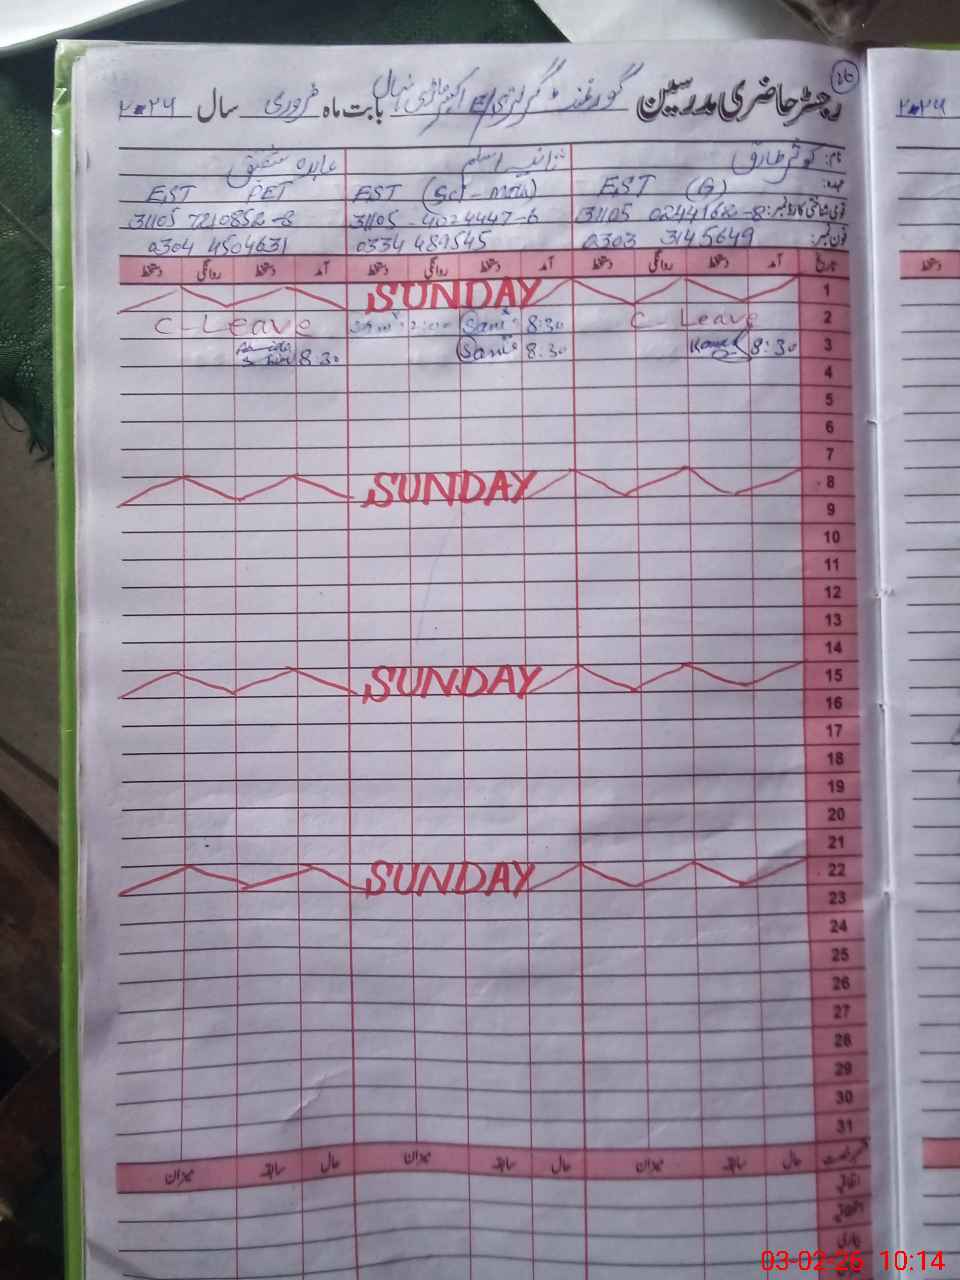 26
رجسٹر حاضری مدرسین گورنمنٹ گرلز بابت ماہ فروری سال ۲۰۲۶
نام: کوثر طارق شازیہ اسلم عابدہ شفیق
عہدہ: EST (G) EST (Sci-Math) EST PET
قومی شناختی کارڈ نمبر: 31105 0244168-8 31105-4024447-6 31105 7210852-8
فون نمبر: 0303 3145649 0334 489545 0304 4504631
تاریخ آمد دستخط روانگی دستخط آمد دستخط روانگی دستخط آمد دستخط روانگی دستخط
1 SUNDAY
2 C-Leave 8:30 Sami 2:00 C-Leave
3 8:30 8:30 Sami 8:30
4
5
6
7
8 SUNDAY
9
10
11
12
13
14
15 SUNDAY
16
17
18
19
20
21
22 SUNDAY
23
24
25
26
27
28
29
30
31
حال سابقہ میزان حال سابقہ میزان حال سابقہ میزان
اتفاقیہ
۲۰۲۶
دستخط
03-02-26 10:14